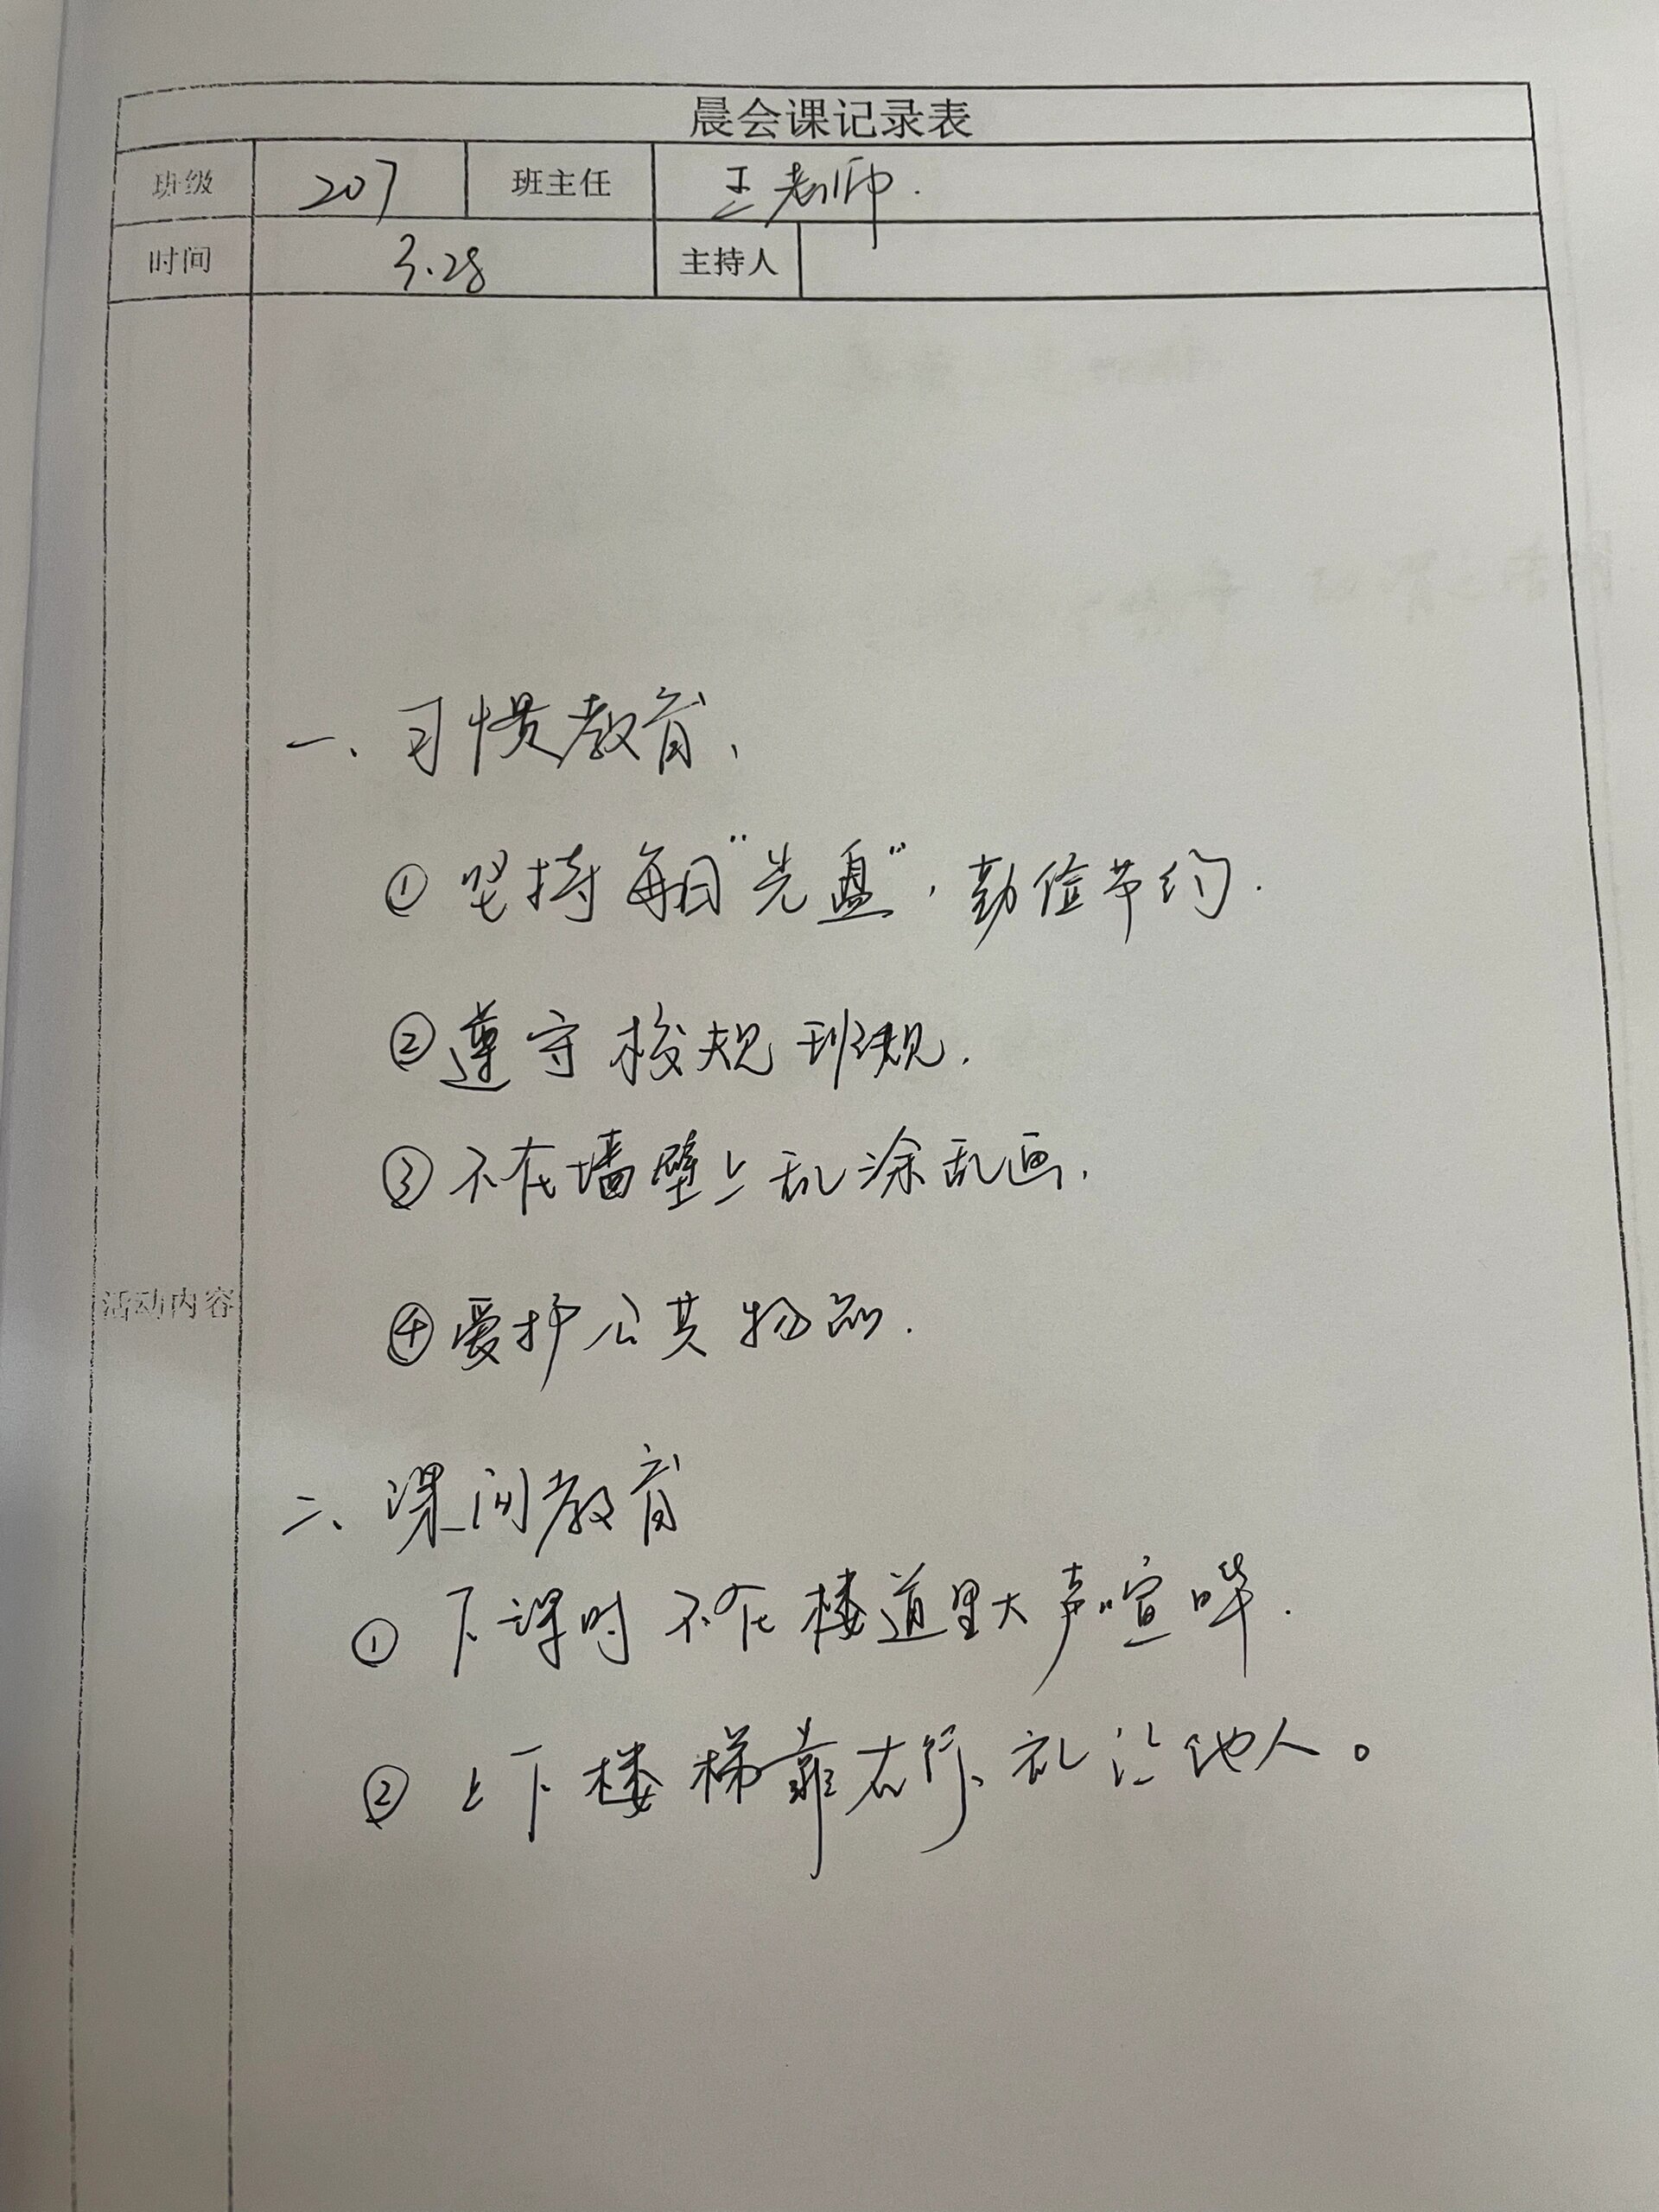 晨会课记录表
班级 207 班主任 王老师.
时间 3.28 主持人
活动内容
一、习惯教育、
①坚持每日"光盘",勤俭节约.
②遵守校规班规.
③不在墙壁上乱涂乱画.
④爱护公共物品.
二、课间教育
①下课时不在楼道里大声喧哗.
②上下楼梯靠右行、礼让他人。